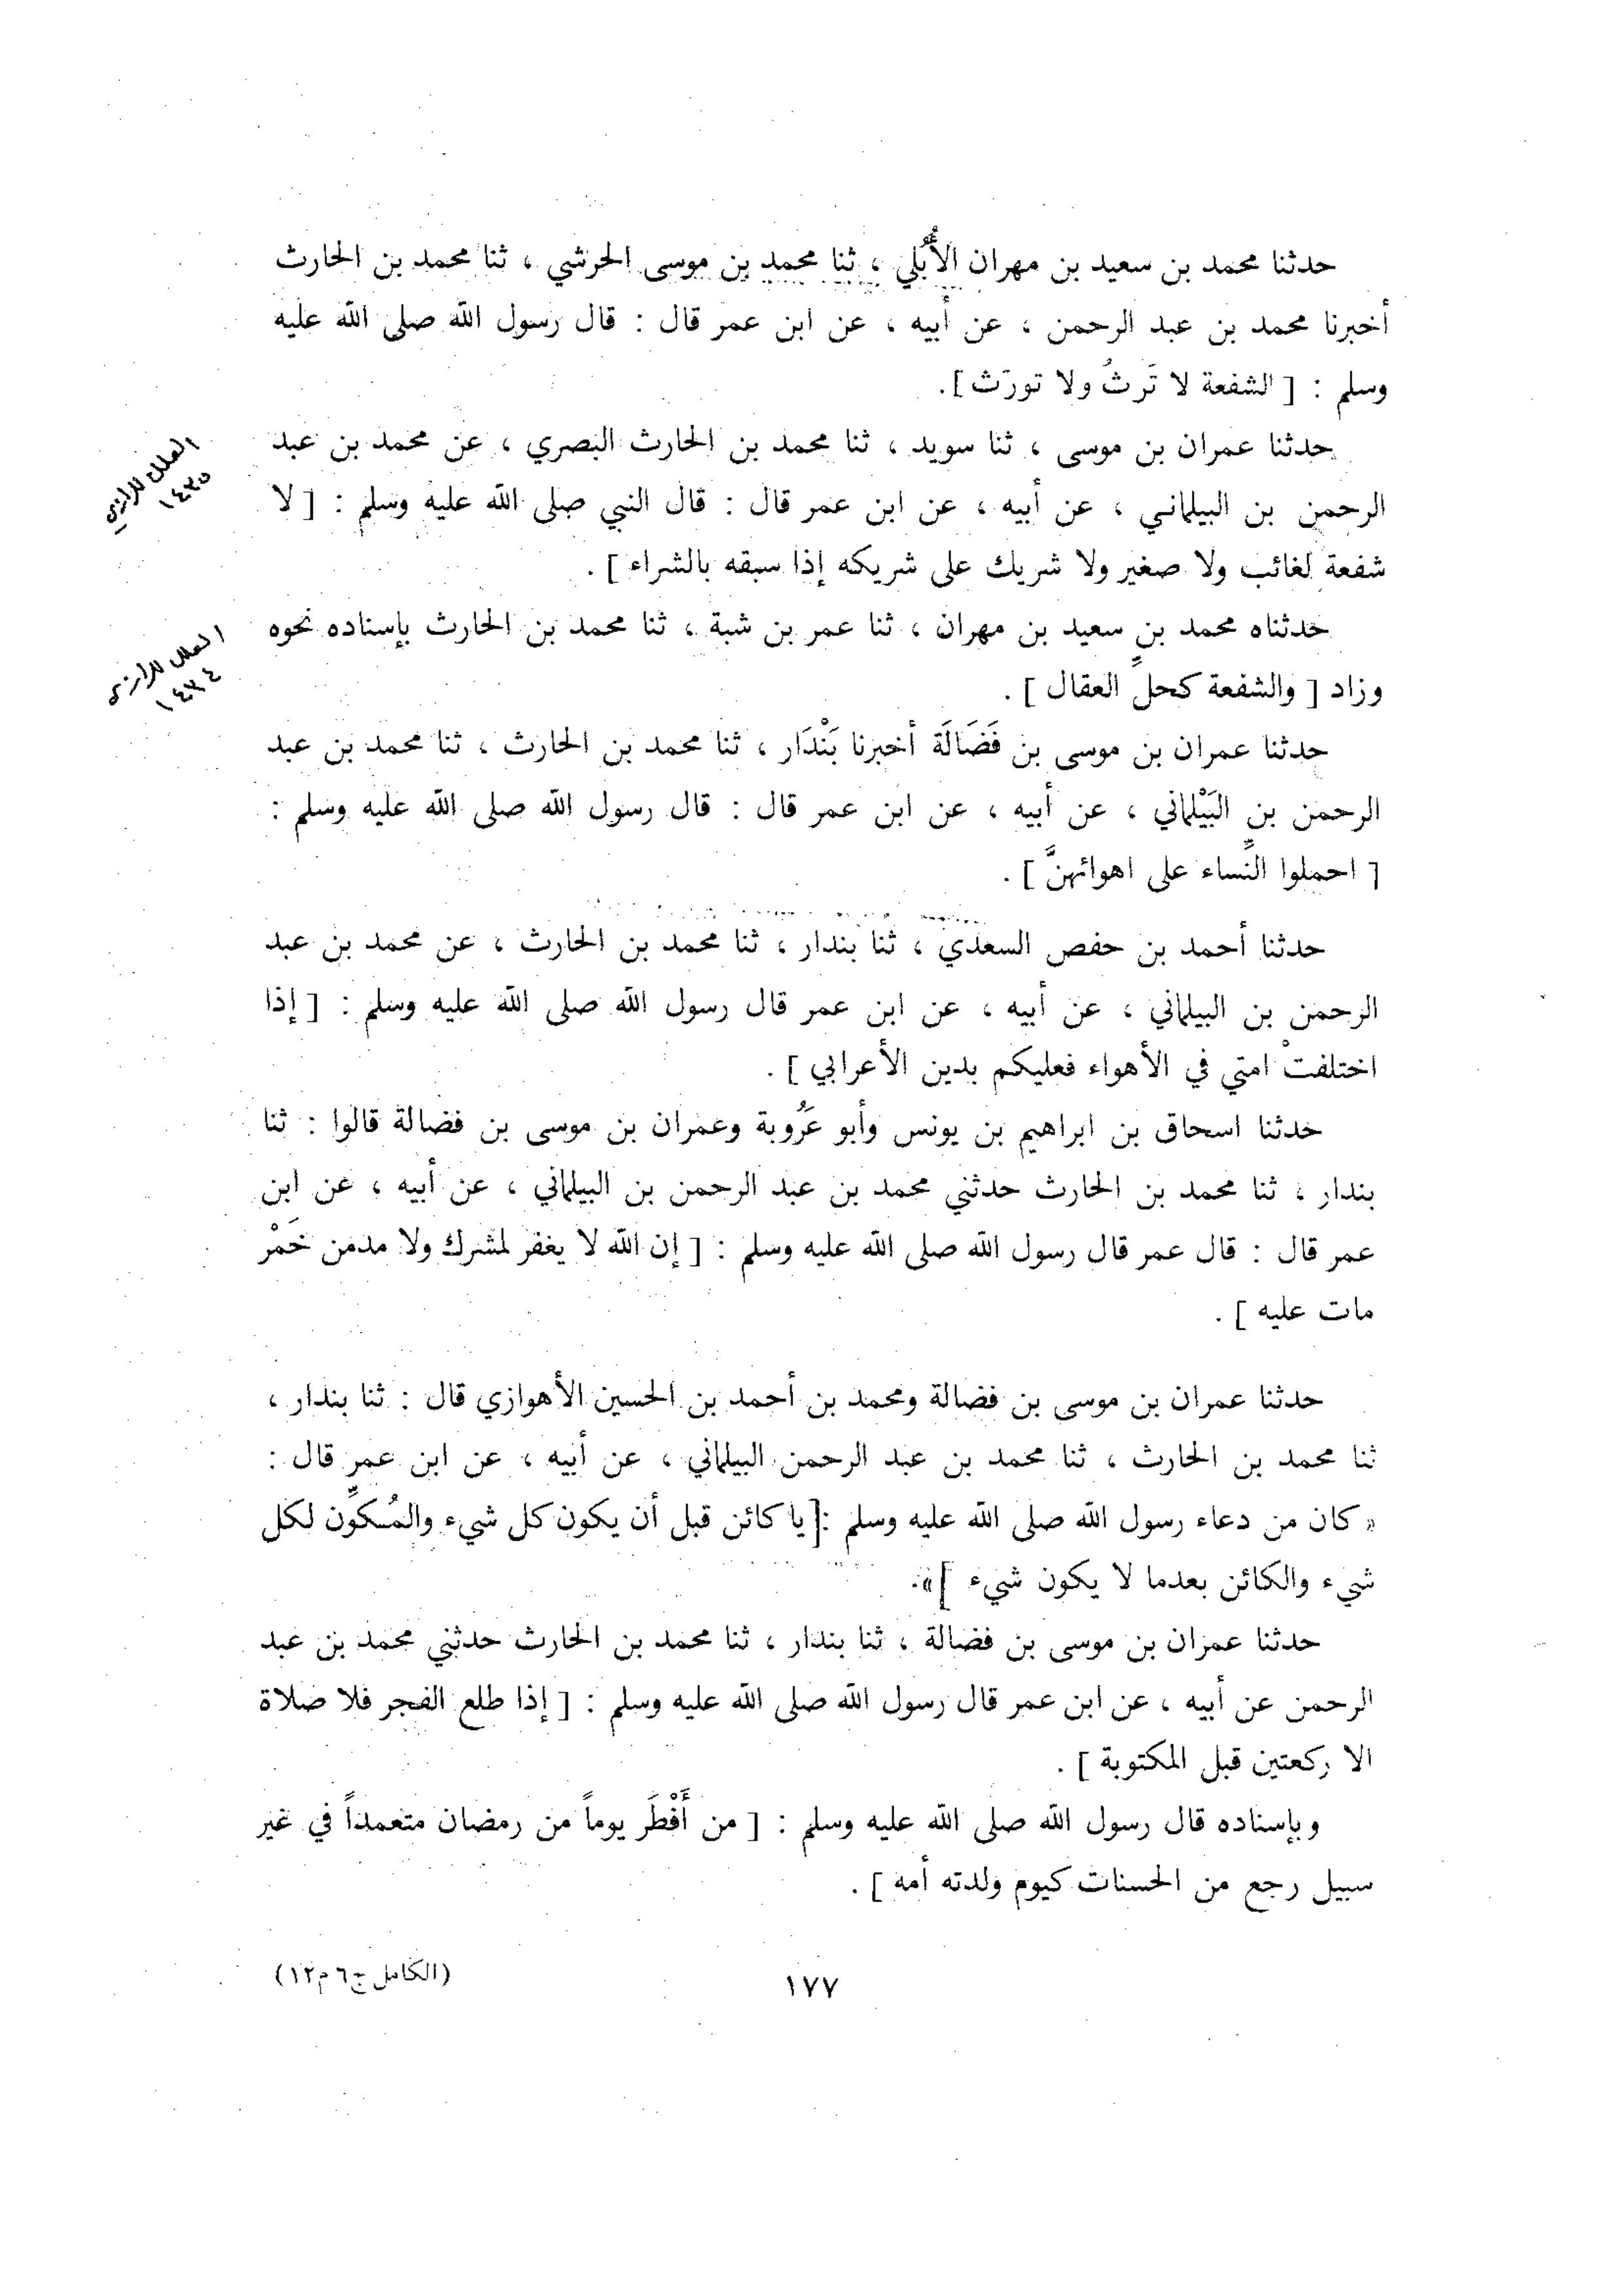 حدثنا محمد بن سعيد بن مهران الأُبُلي ، ثنا محمد بن موسى الحرشي ، ثنا محمد بن الحارث
أخبرنا محمد بن عبد الرحمن ، عن أبيه ، عن ابن عمر قال : قال رسول الله صلى الله عليه
وسلم : [ الشفعة لا تَرثُ ولا تورَث ].
حدثنا عمران بن موسى ، ثنا سويد ، ثنا محمد بن الحارث البصري ، عن محمد بن عبد
الرحمن بن البيلماني ، عن أبيه ، عن ابن عمر قال : قال النبي صلى الله عليه وسلم : [ لا
شفعة لغائب ولا صغير ولا شريك على شريكه إذا سبقه بالشراء ] .
العلل للرازي
١٤٣٥
حدثناه محمد بن سعيد بن مهران ، ثنا عمر بن شبة ، ثنا محمد بن الحارث بإسناده نحوه
وزاد [ والشفعة كحلِّ العقال ] .
العلل للرازي
١٤٣٤
حدثنا عمران بن موسى بن فَضَالَة أخبرنا بَنْدَار ، ثنا محمد بن الحارث ، ثنا محمد بن عبد
الرحمن بن البَيْلماني ، عن أبيه ، عن ابن عمر قال : قال رسول الله صلى الله عليه وسلم :
[ احملوا النِّساء على اهوائهنَّ ] .
حدثنا أحمد بن حفص السعدي ، ثنا بندار ، ثنا محمد بن الحارث ، عن محمد بن عبد
الرحمن بن البيلماني ، عن أبيه ، عن ابن عمر قال رسول الله صلى الله عليه وسلم : [ إذا
اختلفتْ امتي في الأهواء فعليكم بدين الأعرابي ] .
حدثنا اسحاق بن ابراهيم بن يونس وأبو عَرُوبة وعمران بن موسى بن فضالة قالوا : ثنا
بندار ، ثنا محمد بن الحارث حدثني محمد بن عبد الرحمن بن البيلماني ، عن أبيه ، عن ابن
عمر قال : قال عمر قال رسول الله صلى الله عليه وسلم : [ إن الله لا يغفر لمشرك ولا مدمن خَمْر
مات عليه ] .
حدثنا عمران بن موسى بن فضالة ومحمد بن أحمد بن الحسين الأهوازي قال : ثنا بندار ،
ثنا محمد بن الحارث ، ثنا محمد بن عبد الرحمن البيلماني ، عن أبيه ، عن ابن عمر قال :
« كان من دعاء رسول الله صلى الله عليه وسلم :[ يا كائن قبل أن يكون كل شيء والمُكوِّن لكل
شيء والكائن بعدما لا يكون شيء ]».
حدثنا عمران بن موسى بن فضالة ، ثنا بندار ، ثنا محمد بن الحارث حدثني محمد بن عبد
الرحمن عن أبيه ، عن ابن عمر قال رسول الله صلى الله عليه وسلم : [ إذا طلع الفجر فلا صلاة
الا ركعتين قبل المكتوبة ] .
وبإسناده قال رسول الله صلى الله عليه وسلم : [ من أَفْطَر يوماً من رمضان متعمداً في غير
سبيل رجع من الحسنات كيوم ولدته أمه ] .
١٧٧
(الكامل ج٦ م١٢)